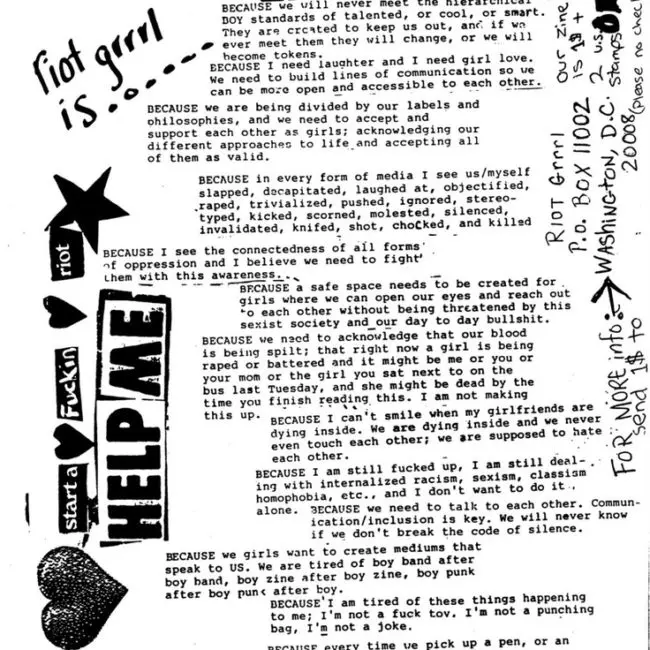 riot grrrl
is.......
BECAUSE we will never meet the hierarchical
BOY standards of talented, or cool, or smart.
They are created to keep us out, and if we
ever meet them they will change, or we will
become tokens.
BECAUSE I need laughter and I need girl love.
We need to build lines of communication so we
can be more open and accessible to each other.
BECAUSE we are being divided by our labels and
philosophies, and we need to accept and
support each other as girls; acknowledging our
different approaches to life and accepting all
of them as valid.
BECAUSE in every form of media I see us/myself
slapped, decapitated, laughed at, objectified,
raped, trivialized, pushed, ignored, stereo-
typed, kicked, scorned, molested, silenced,
invalidated, knifed, shot, chocked, and killed
BECAUSE I see the connectedness of all forms
of oppression and I believe we need to fight
them with this awareness.
BECAUSE a safe space needs to be created for
girls where we can open our eyes and reach out
to each other without being threatened by this
sexist society and our day to day bullshit.
BECAUSE we need to acknowledge that our blood
is being spilt; that right now a girl is being
raped or battered and it might be me or you or
your mom or the girl you sat next to on the
bus last Tuesday, and she might be dead by the
time you finish reading this. I am not making
this up.
BECAUSE I can't smile when my girlfriends are
dying inside. We are dying inside and we never
even touch each other; we are supposed to hate
each other.
BECAUSE I am still fucked up, I am still deal-
ing with internalized racism, sexism, classism
homophobia, etc., and I don't want to do it
alone.
BECAUSE we need to talk to each other. Commun-
ication/inclusion is key. We will never know
if we don't break the code of silence.
BECAUSE we girls want to create mediums that
speak to US. We are tired of boy band after
boy band, boy zine after boy zine, boy punk
after boy punk after boy.
BECAUSE I am tired of these things happening
to me; I'm not a fuck toy. I'm not a punching
bag, I'm not a joke.
BECAUSE every time we pick up a pen, or an
start a
Fuckin
riot
HELP ME
FOR MORE info:
send 1$ to
RIOT Grrrl
P.O. BOX 11002
WASHINGTON, D.C.
20008
our zine
is 1$ +
2 U.S.
stamps
(please no check